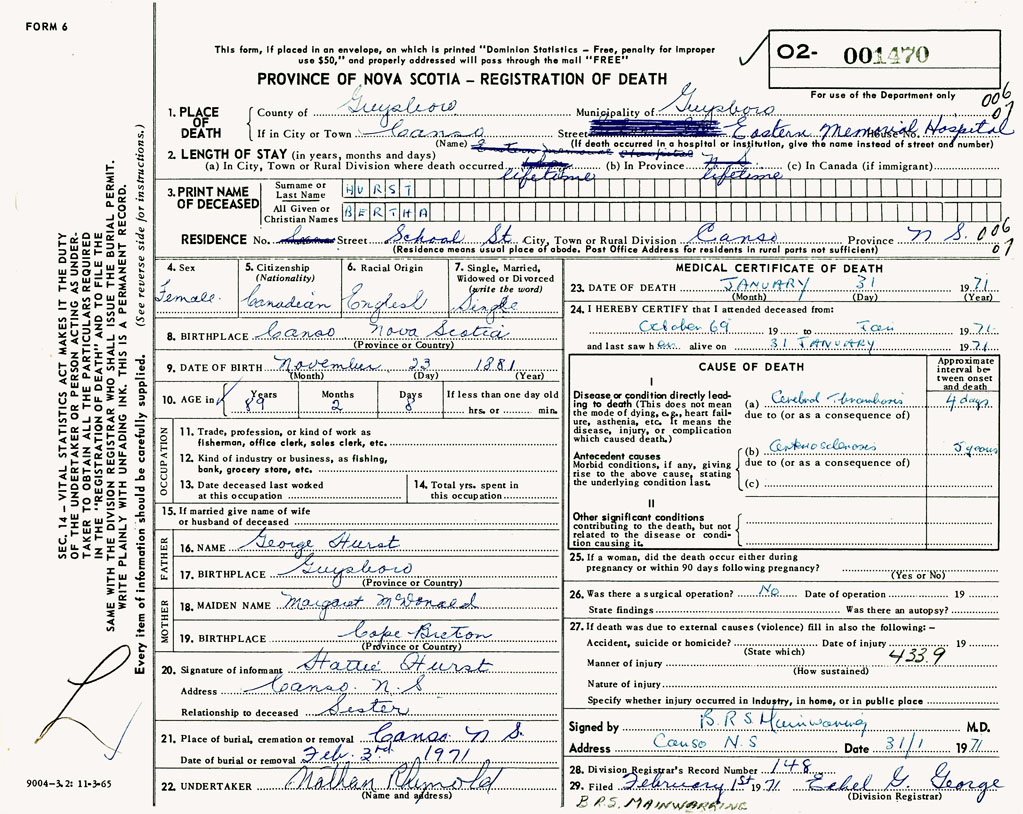 FORM 6
This form, if placed in an envelope, on which is printed "Dominion Statistics – Free, penalty for improper
use $50," and properly addressed will pass through the mail "FREE"
PROVINCE OF NOVA SCOTIA – REGISTRATION OF DEATH
O2- 001470
For use of the Department only
006
07
1. PLACE OF DEATH
County of Guysboro Municipality of Guysboro
If in City or Town Canso Street Eastern Memorial Hospital House No.
(Name) (If death occurred in a hospital or institution, give the name instead of street and number)
2. LENGTH OF STAY (in years, months and days)
(a) In City, Town or Rural Division where death occurred lifetime (b) In Province lifetime (c) In Canada (if immigrant)
3. PRINT NAME OF DECEASED
Surname or Last Name HURST
All Given or Christian Names BERTHA
RESIDENCE No. Street School St. City, Town or Rural Division Canso Province N S. 006
07
(Residence means usual place of abode. Post Office Address for residents in rural parts not sufficient)
4. Sex
Female
5. Citizenship
(Nationality)
Canadian
6. Racial Origin
English
7. Single, Married,
Widowed or Divorced
(write the word)
Single
8. BIRTHPLACE Canso Nova Scotia
(Province or Country)
9. DATE OF BIRTH November 23 1881
(Month) (Day) (Year)
10. AGE in Years Months Days If less than one day old
89 2 8 hrs. or min.
OCCUPATION
11. Trade, profession, or kind of work as
fisherman, office clerk, sales clerk, etc.
12. Kind of industry or business, as fishing,
bank, grocery store, etc.
13. Date deceased last worked
at this occupation
14. Total yrs. spent in
this occupation
15. If married give name of wife
or husband of deceased
FATHER
16. NAME George Hurst
17. BIRTHPLACE Guysboro
(Province or Country)
MOTHER
18. MAIDEN NAME Margaret McDonald
19. BIRTHPLACE Cape Breton
(Province or Country)
20. Signature of informant Hattie Hurst
Address Canso. N.S
Relationship to deceased Sister
21. Place of burial, cremation or removal Canso N S.
Date of burial or removal Feb. 3rd 1971
22. UNDERTAKER Nathan
(Name and address)
MEDICAL CERTIFICATE OF DEATH
23. DATE OF DEATH JANUARY 31 1971
(Month) (Day) (Year)
24. I HEREBY CERTIFY that I attended deceased from:
October 69 19 to Jan 1971.
and last saw her alive on 31 JANUARY 1971.
CAUSE OF DEATH
Approximate
interval be-
tween onset
and death
I
Disease or condition directly lead-
ing to death (This does not mean
the mode of dying, e.g., heart fail-
ure, asthenia, etc. It means the
disease, injury, or complication
which caused death.)
(a) Cerebral thrombosis 4 days
due to (or as a consequence of)
Antecedent causes
Morbid conditions, if any, giving
rise to the above cause, stating
the underlying condition last.
(b) Arteriosclerosis 5 years
due to (or as a consequence of)
(c)
II
Other significant conditions
contributing to the death, but not
related to the disease or condi-
tion causing it.
25. If a woman, did the death occur either during
pregnancy or within 90 days following pregnancy?
(Yes or No)
26. Was there a surgical operation? No Date of operation 19
State findings Was there an autopsy?
27. If death was due to external causes (violence) fill in also the following: –
Accident, suicide or homicide? Date of injury 19
(State which) 433.9
Manner of injury
(How sustained)
Nature of injury
Specify whether injury occurred in industry, in home, or in public place
Signed by B.R.S Mainwarring M.D.
Address Canso N.S Date 31/1 1971
28. Division Registrar's Record Number 148
29. Filed February 1st 1971 Ethel G George
(Division Registrar)
B R.S. MAINWARRING
SEC. 14 – VITAL STATISTICS ACT MAKES IT THE DUTY
OF THE UNDERTAKER OR PERSON ACTING AS UNDER-
TAKER TO OBTAIN ALL THE PARTICULARS REQUIRED
IN THE "REGISTRATION OF DEATH" AND TO FILE THE
SAME WITH THE DIVISION REGISTRAR WHO SHALL ISSUE THE BURIAL PERMIT.
WRITE PLAINLY WITH UNFADING INK. THIS IS A PERMANENT RECORD.
Every item of information should be carefully supplied. (See reverse side for instructions.)
9004-3.2: 11-3-65